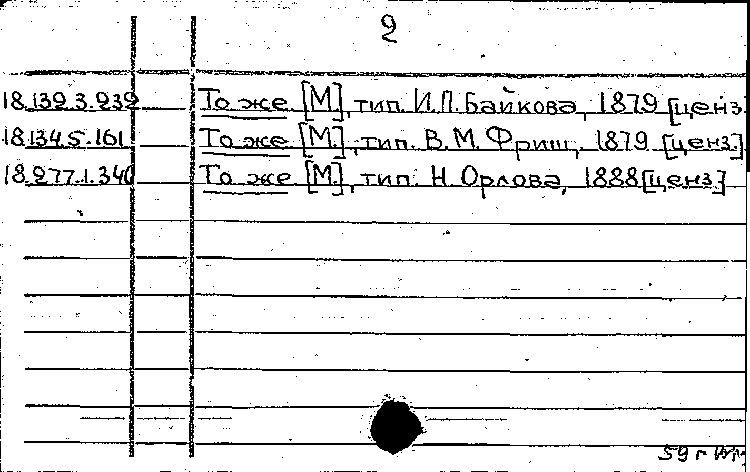 2
18.139.3.239 То же [М.], тип. И.П. Байкова, 1879 [ценз.
18.134.5.161 То же [М.], тип. В.М. Фриш, 1879 [ценз.]
18.277.1.340 То же [М.], тип. Н. Орлова, 1888 [ценз.]
59 г